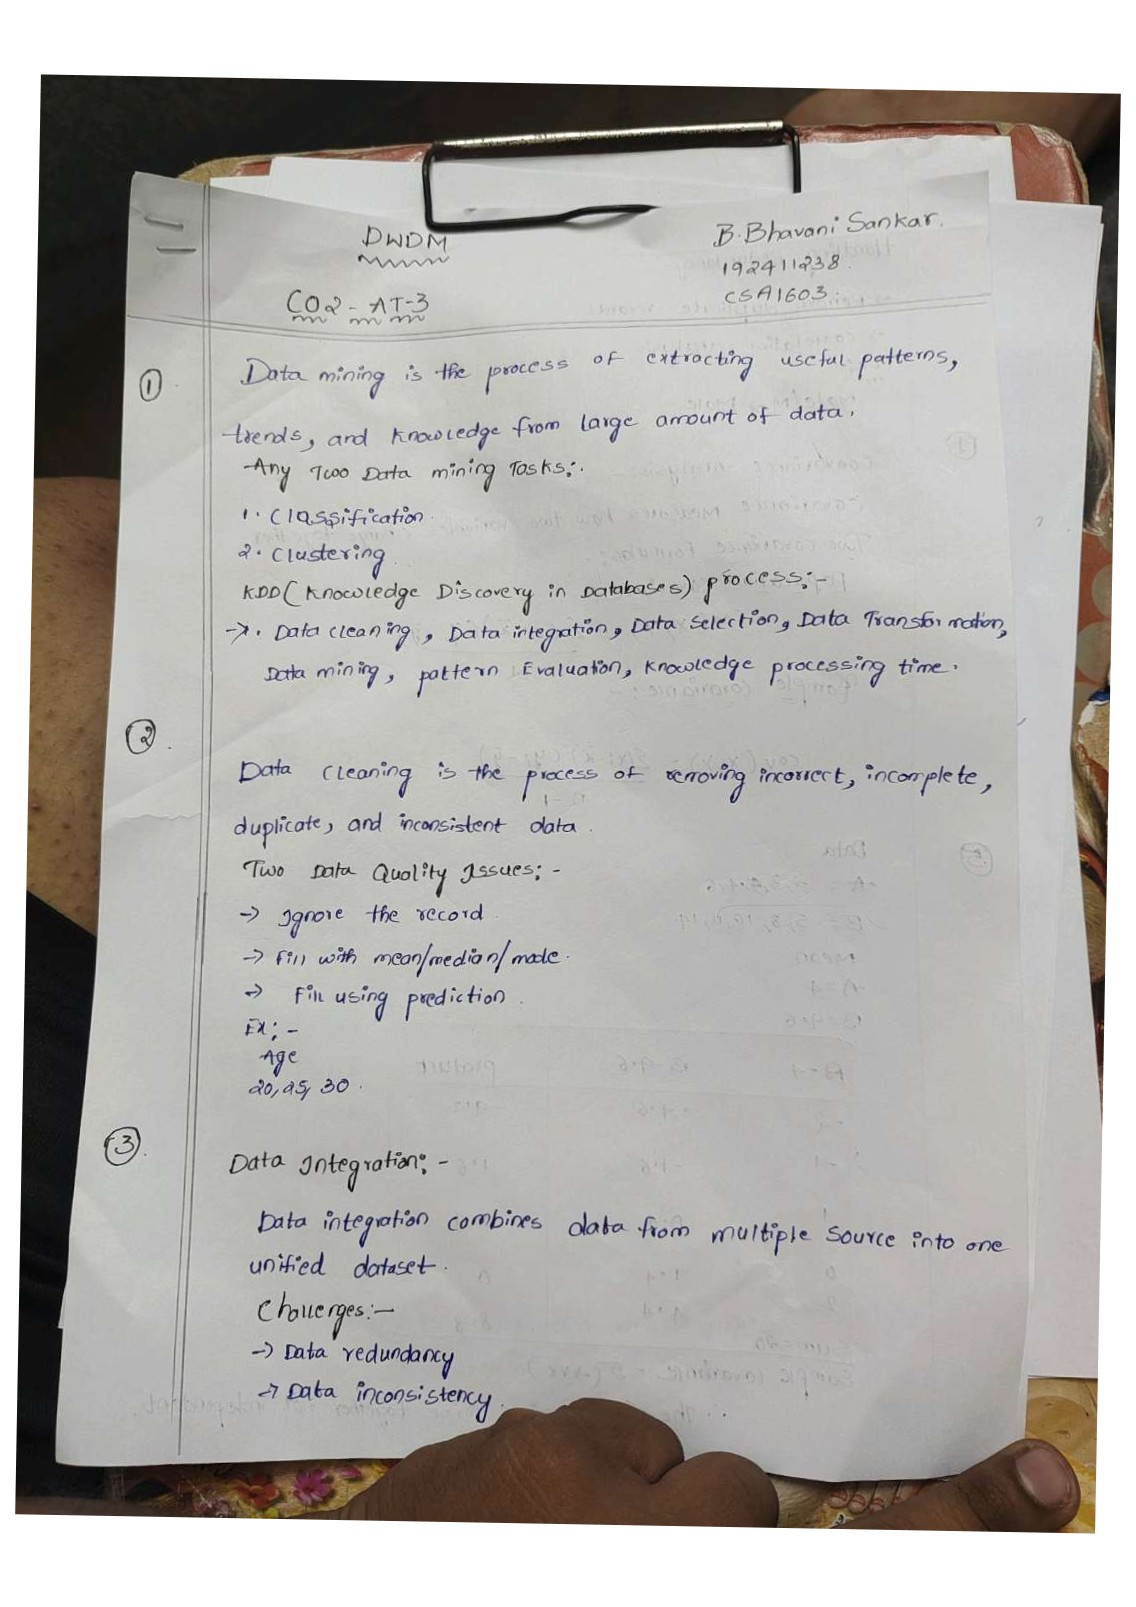 DWDM
B. Bhavani Sankar.
192411238
CO2 - AT-3
CSA1603.
① Data mining is the process of extracting useful patterns,
trends, and knowledge from large amount of data.
Any Two Data mining Tasks:.
1. Classification.
2. Clustering
KDD (Knowledge Discovery in Databases) process:-
→. Data cleaning, Data integration, Data Selection, Data Transformation,
Data mining, pattern Evaluation, Knowledge processing time.
②.
Data cleaning is the process of removing incorrect, incomplete,
duplicate, and inconsistent data.
Two Data Quality Issues:-
→ Ignore the record.
→ Fill with mean/median/mode.
→ Fill using prediction.
Ex:-
Age
20, 25, 30.
③.
Data Integration:-
Data integration combines data from multiple source into one
unified dataset.
Challenges:-
→ Data redundancy
→ Data inconsistency.